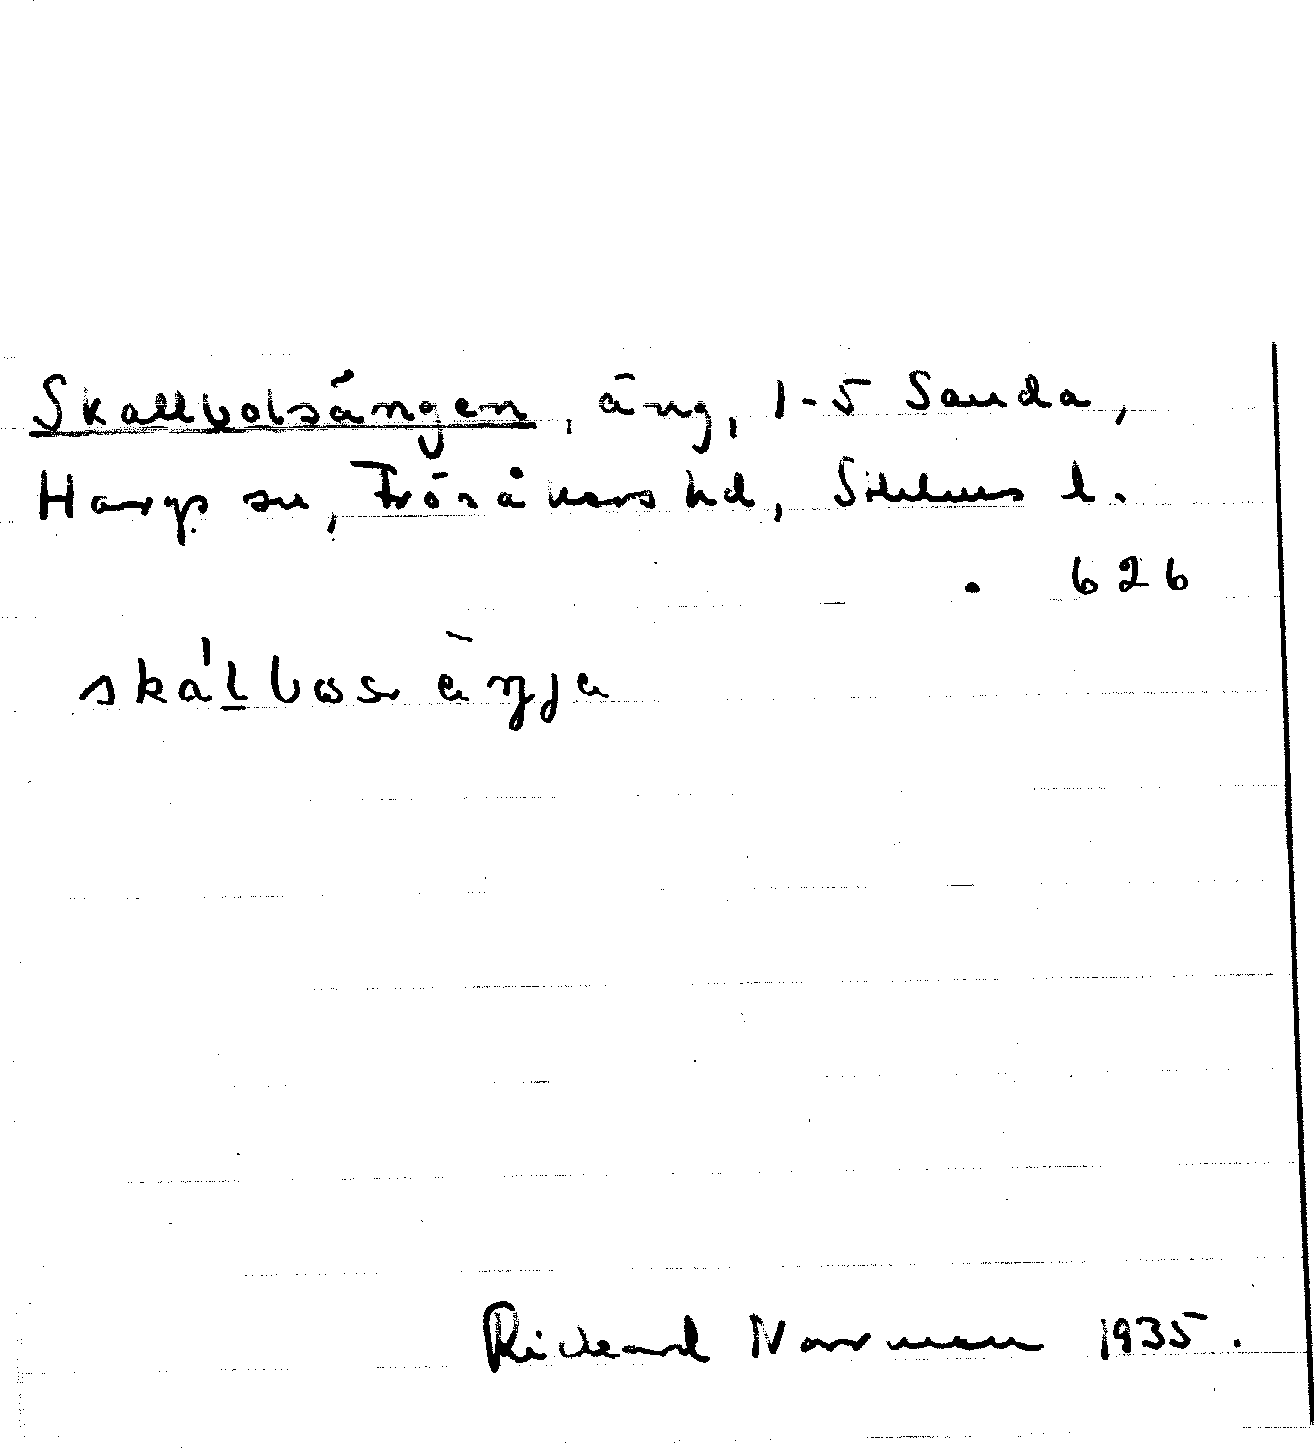 Skallbolsängen, äng, 1-5 Sanda,
Hargs sn, Frösåkers hd, Sthlms l.
626
skálbosəàŋja
Richard Norrman 1935.